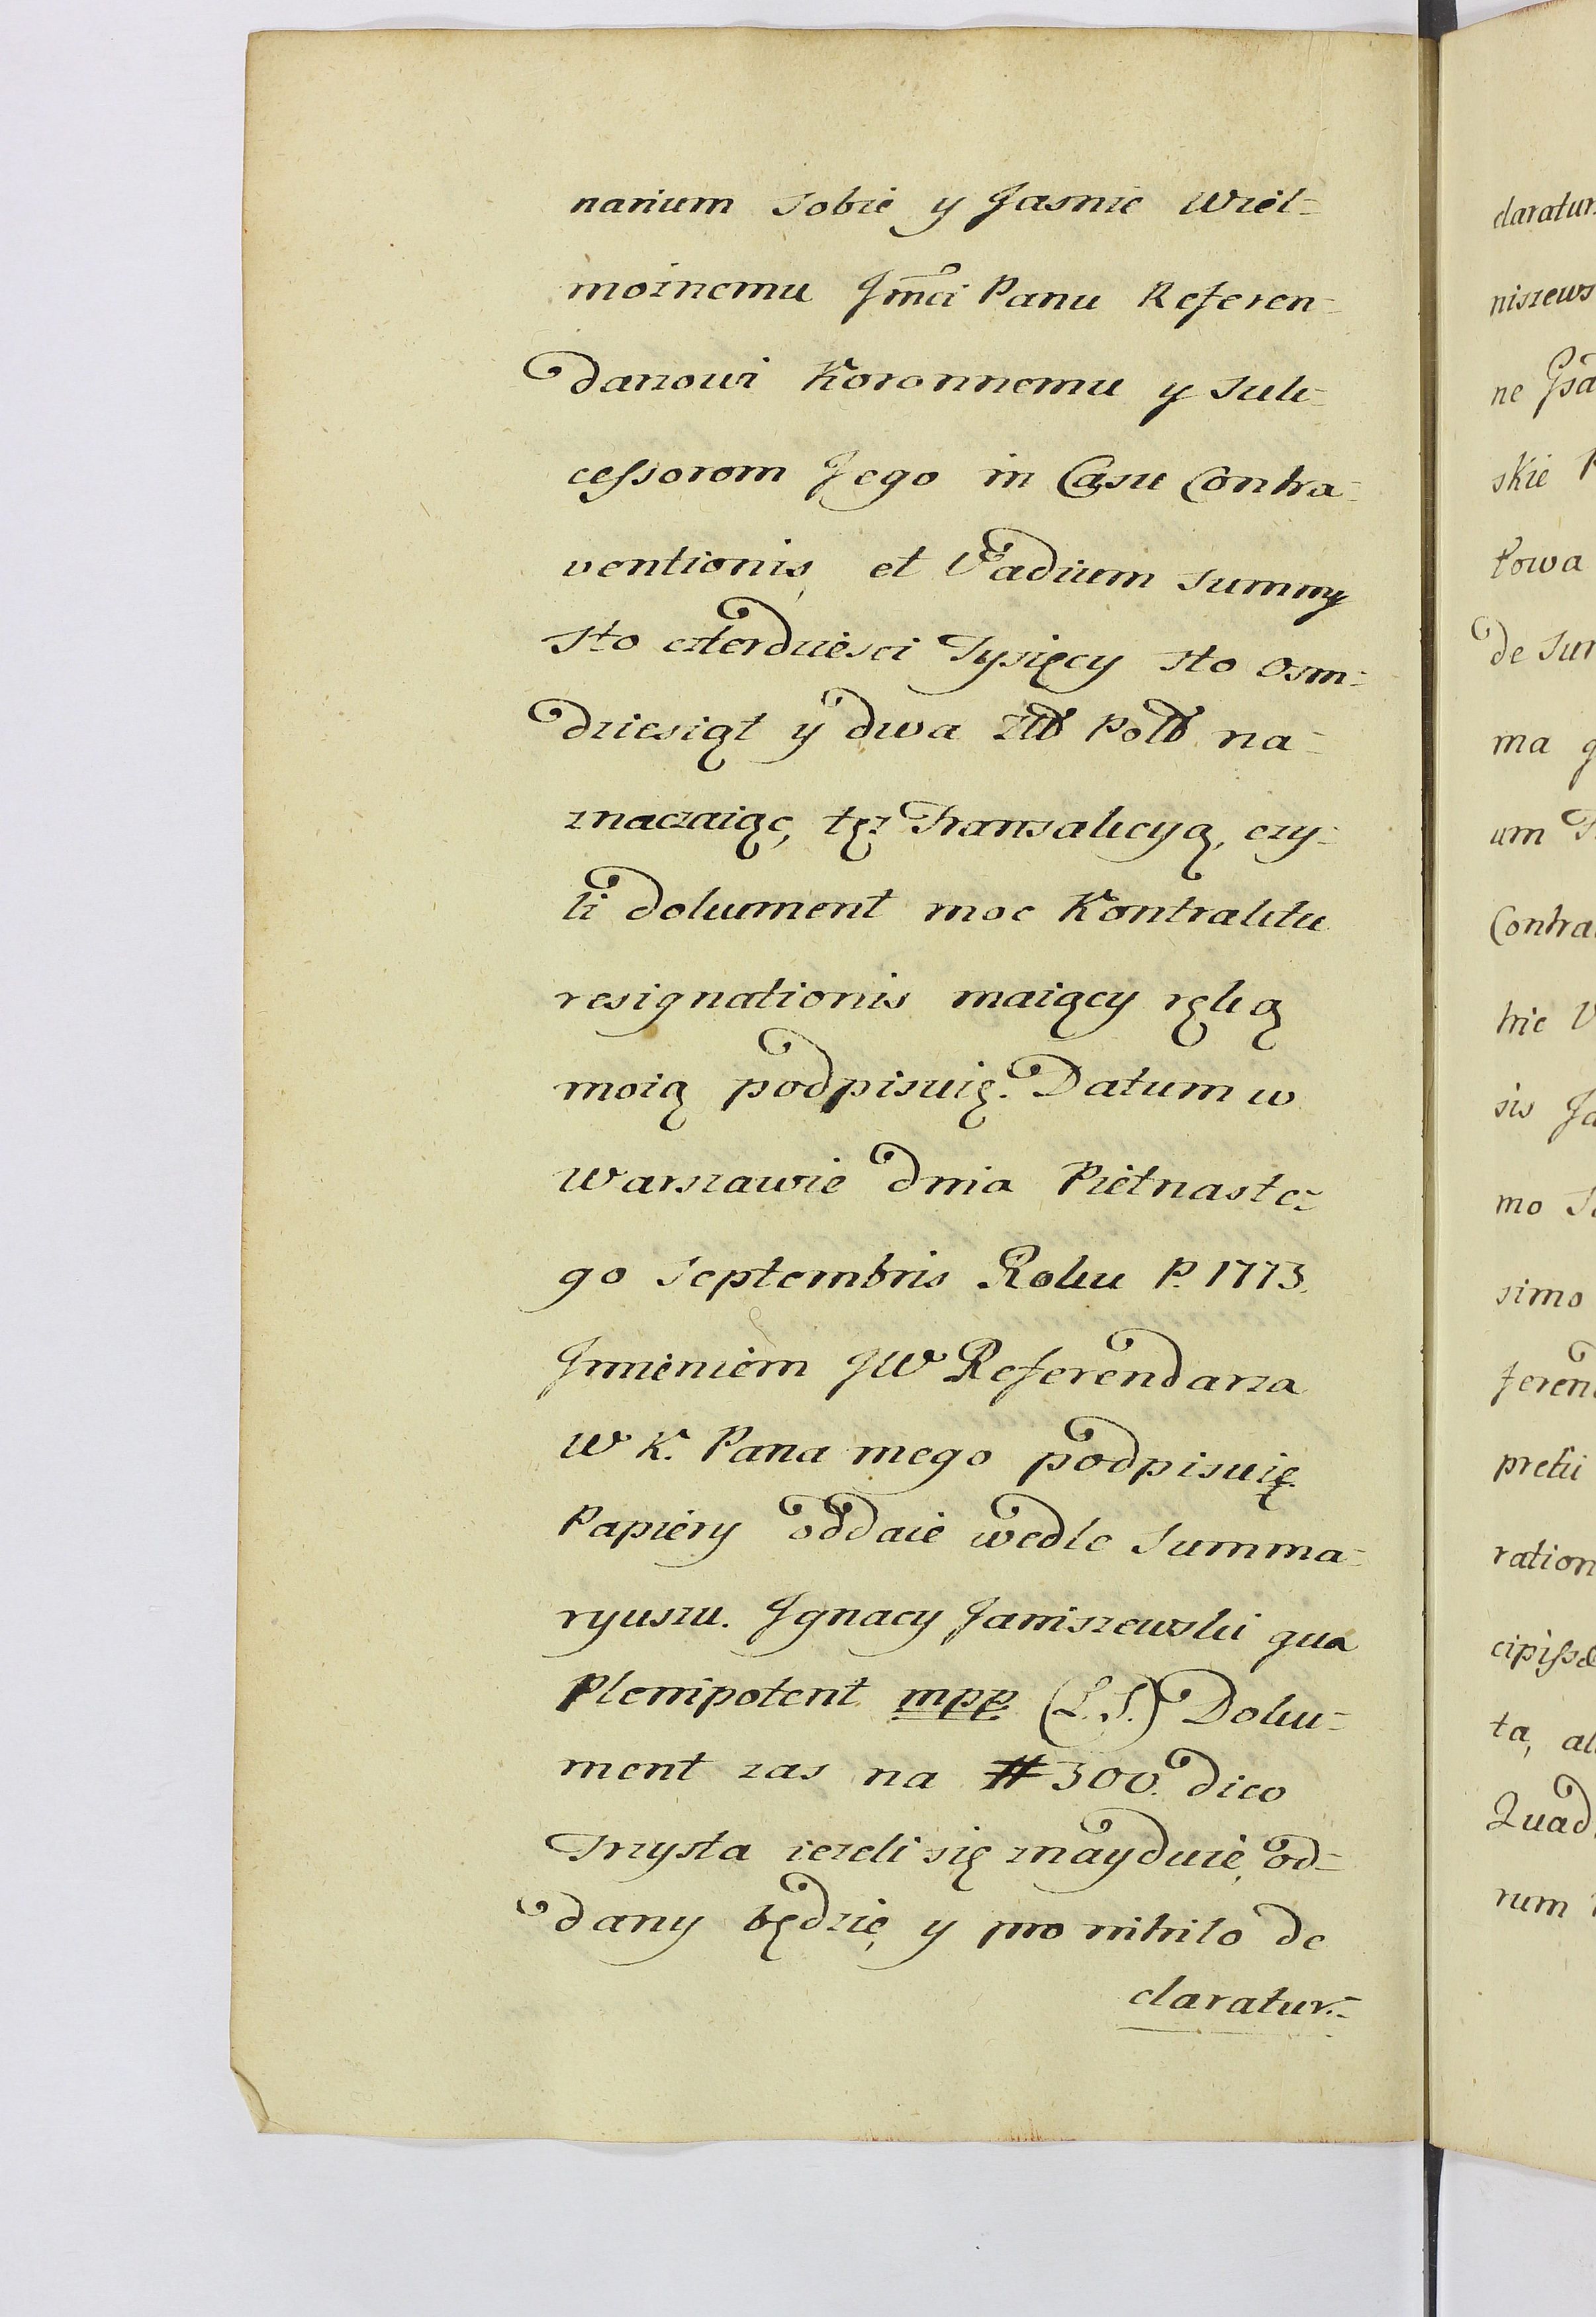 narium sobie y Jasnie Wiel=
moznemu Jmci Panu Referen=
darzowi Koronnemu y Suk=
cessorom Jego in Casu Contra=
ventionis, et Vadium Summy
Sto czterdziesci Tysięcy sto Osm=
dziesiąt y dwa Złł Poll na=
znaczaiąc, tęz Transakcyą, czy=
li dokument moc Kontraktu
resignationis maiący ręką
moią podpisuię. Datum w
Warszawie dnia Pietnaste=
go Septembris Roku P. 1773.
Jmieniem JW Referendarza
W K. Pana mego podpisuię.
Papiery oddaie wedle Summa=
ryuszu. Jgnacy Janiszewski qua
Plenipotent mpp (L.S.) Doku=
ment zas na # 300. dico
Trzysta iezeli się znayduie, od=
dany będzie, y pro nihilo de
claratur.=
claratur
niszews
ne
skie
towa
de Sum
ma
um
Contra
hic
sis
mo
simo
feren
pretii
ration
cipisse
ta, al
Quad
rum